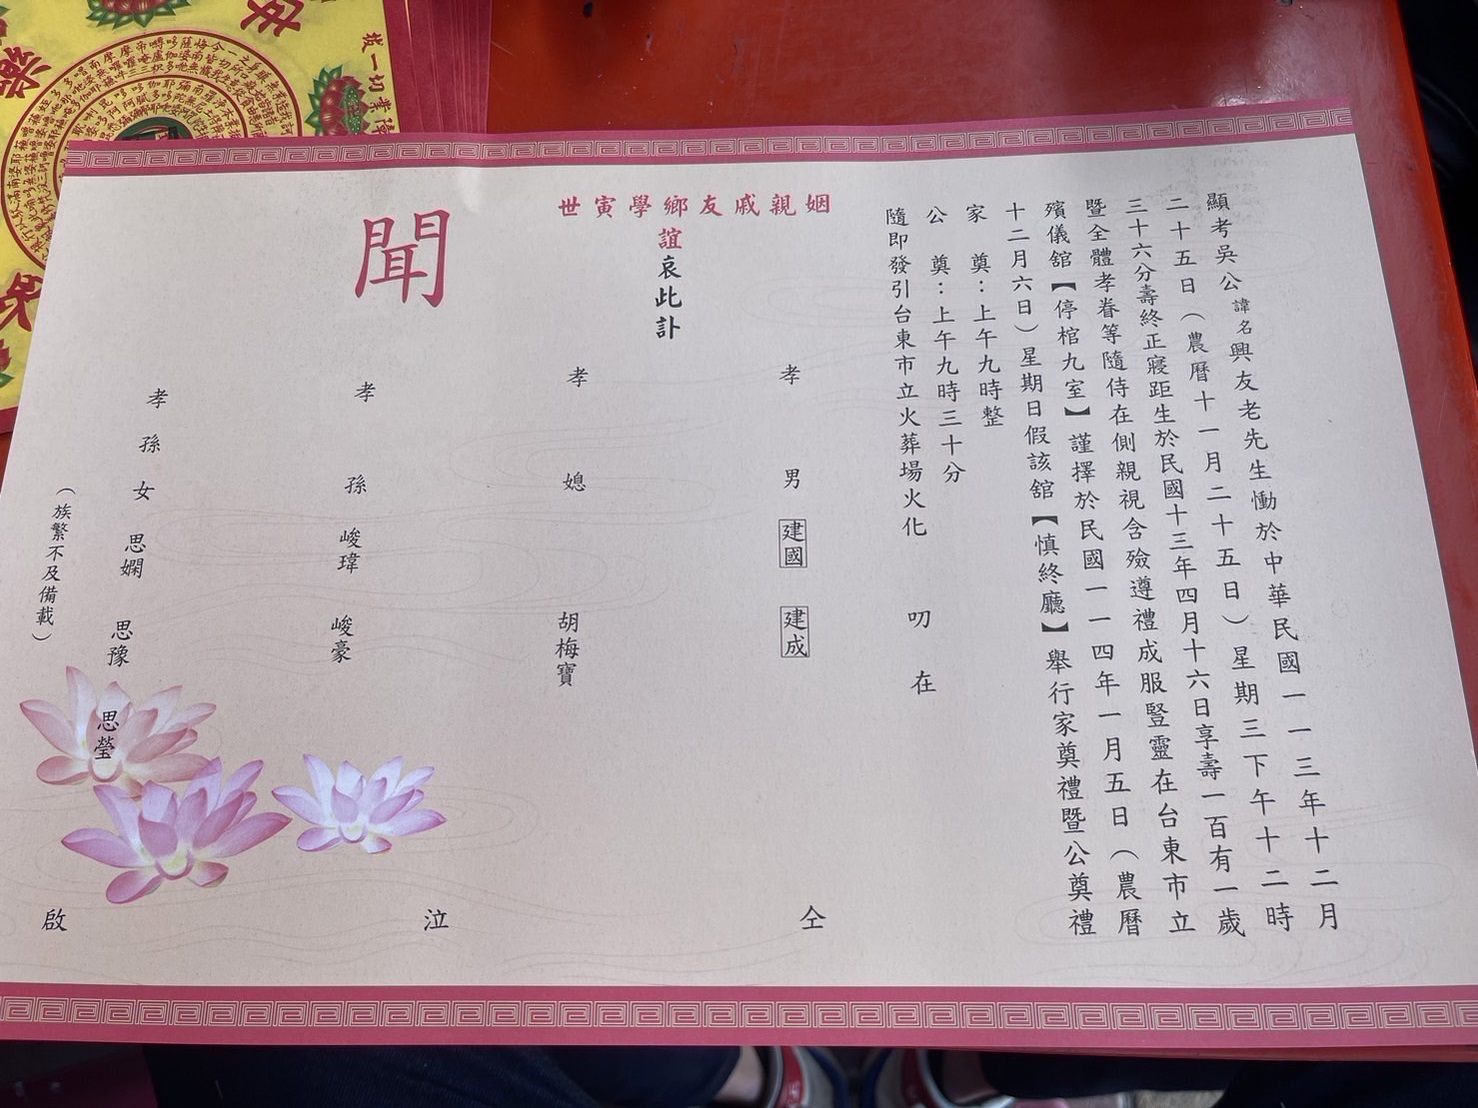 顯考吳公諱名興友老先生慟於中華民國一一三年十二月
二十五日（農曆十一月二十五日）星期三下午十二時
三十六分壽終正寢距生於民國十三年四月十六日享壽一百有一歲
暨全體孝眷等隨侍在側親視含殮遵禮成服豎靈在台東市立
殯儀舘【停棺九室】謹擇於民國一一四年一月五日（農曆
十二月六日）星期日假該舘【慎終廳】舉行家奠禮暨公奠禮
家　奠：上午九時整
公　奠：上午九時三十分
隨即發引台東市立火葬場火化　叨　在
姻親戚友鄉學寅世
誼哀此訃
聞
孝　男　建國　建成
孝　媳　胡梅寶
孝　孫　峻瑋　峻豪
孝孫女　思嫻　思豫　思瑩
（族繁不及備載）
仝　泣　啟
拔一切業障